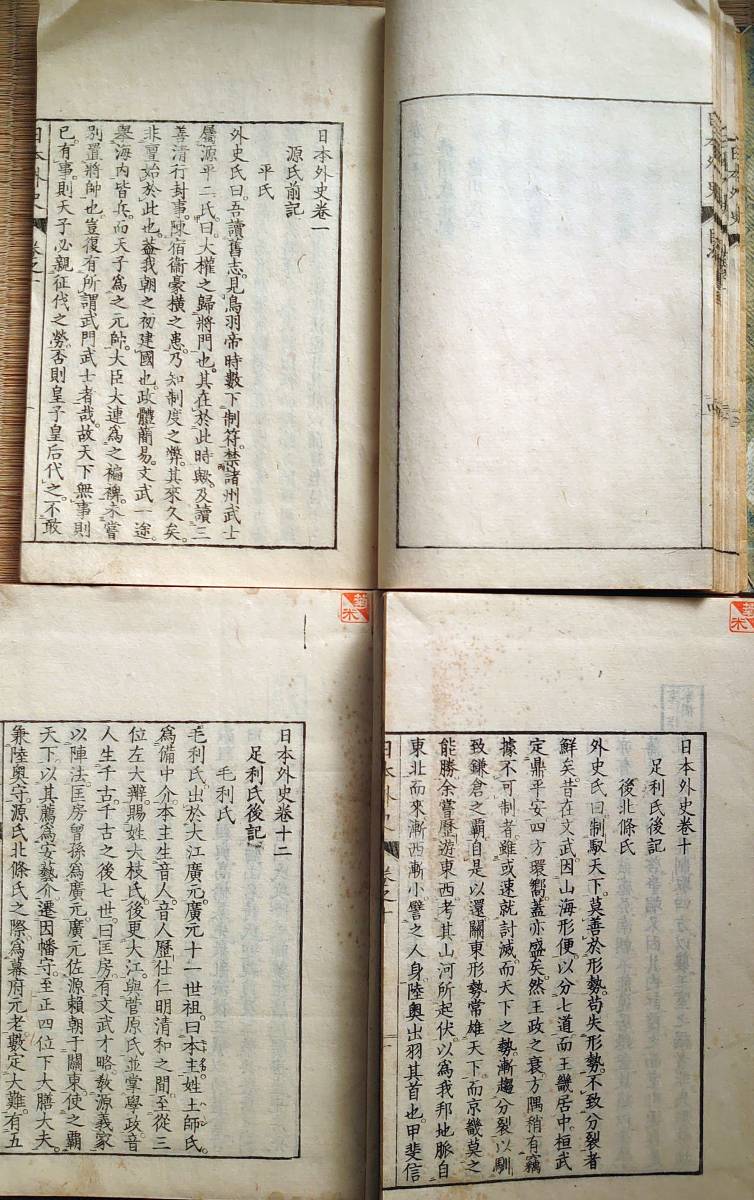 日本外史卷一
源氏前記
平氏
外史氏曰。吾讀舊志。見鳥羽帝時數下制符。禁諸州武士
屬源平二氏。曰大權之歸將門也。其在於此時歟。及讀三
善清行封事。陳宿衞豪橫之患。乃知制度之弊。其來久矣。
非亶始於此也。蓋我朝之初建國也。政體簡易。文武一途。
擧海内皆兵。而天子爲之元帥。大臣大連爲之褊裨。未嘗
別置將帥也。豈復有所謂武門武士者哉。故天下無事則
已。有事則天子必親征伐之勞。否則皇子皇后代之。不敢
日本外史
卷之一
日本外史
日本外史
日本外史卷十
足利氏後記
後北條氏
外史氏曰。制馭天下。莫善於形勢。苟失形勢。不致分裂者
鮮矣。昔在文武。因山海形便。以分七道。而王畿居中。桓武
定鼎平安。四方環嚮。蓋亦盛矣。然王政之衰。方隅稍有竊
據不可制者。雖或速就討滅。而天下之勢。漸趨分裂。以馴
致鎌倉之覇。自是以還。關東形勢。常雄天下。而京畿莫之
能勝。余嘗歷遊東西。考其山河所起伏。以爲我邦地脈。自
東北而來。漸西漸小。譬之人身。陸奥出羽其首也。甲斐信
日本外史
卷之十
日本外史卷十二
足利氏後記
毛利氏
毛利氏出於大江廣元。廣元十一世祖。曰本主。姓土師氏。
爲備中介。本主生音人。音人歷仕仁明清和之間。至從三
位左大辨。賜姓大枝氏。後更大江。與菅原氏並掌學政。音
人生千古。千古之後七世。曰匡房。有文武才略。敎源義家
以陣法。匡房曾孫爲廣元。廣元佐源賴朝于關東。使之覇
天下。以其薦爲安藝介。遷因幡守。至正四位下大膳大夫。
兼陸奥守。源氏北條氏之際。爲幕府元老。數定大難。有五